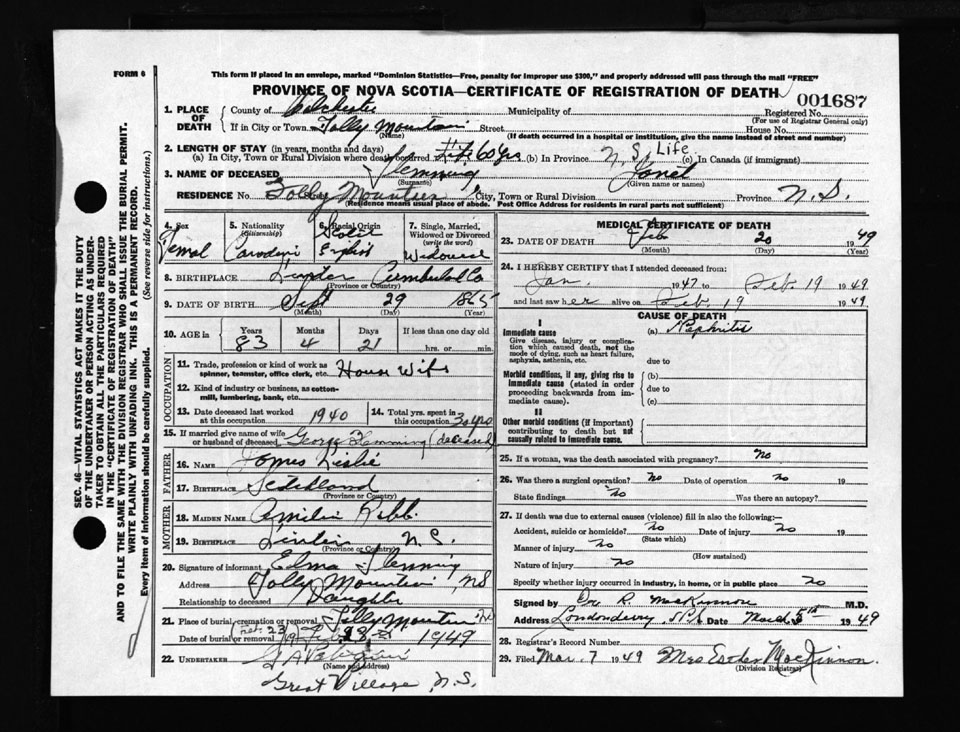 FORM 6
This form if placed in an envelope, marked "Dominion Statistics—Free, penalty for improper use $300," and properly addressed will pass through the mail "FREE"
PROVINCE OF NOVA SCOTIA—CERTIFICATE OF REGISTRATION OF DEATH
001687
1. PLACE OF DEATH County of Colchester Municipality of Registered No.
(For use of Registrar General only)
If in City or Town Folly Mountain Street House No.
(Name) (If death occurred in a hospital or institution, give the name instead of street and number)
2. LENGTH OF STAY (in years, months and days)
(a) In City, Town or Rural Division where death occurred Life 60 Yrs (b) In Province N.S. Life (c) In Canada (if immigrant)
3. NAME OF DECEASED Flemming Janet
(Surname) (Given name or names)
RESIDENCE No. Folly Mountain City, Town or Rural Division Province N.S.
(Residence means usual place of abode. Post Office Address for residents in rural parts not sufficient)
4. Sex Femal
5. Nationality (Citizenship)
6. Racial Origin Scotch English
7. Single, Married, Widowed or Divorced (write the word)
8. BIRTHPLACE Cumberland Co
(Province or Country)
9. DATE OF BIRTH Sept 29 1865
(Month) (Day) (Year)
10. AGE in Years 83 Months 4 Days 21 If less than one day old hrs. or min.
OCCUPATION
11. Trade, profession or kind of work as spinner, teamster, office clerk, etc. House Wife
12. Kind of industry or business, as cotton-mill, lumbering, bank, etc.
13. Date deceased last worked at this occupation 1940
14. Total yrs. spent in this occupation 30 yrs
15. If married give name of wife or husband of deceased George Flemming (deceased)
FATHER
16. NAME James Leslie
17. BIRTHPLACE
(Province or Country)
MOTHER
18. MAIDEN NAME
19. BIRTHPLACE N.S.
(Province or Country)
20. Signature of informant Elma Flemming
Address Folly Mountain, NS
Relationship to deceased Daughter
21. Place of burial, cremation or removal Folly Mountain NS
Date of burial or removal (Feb. 23) 1949
22. UNDERTAKER
(Name and Address)
Great Village N.S.
MEDICAL CERTIFICATE OF DEATH
23. DATE OF DEATH Feb 20 1949
(Month) (Day) (Year)
24. I HEREBY CERTIFY that I attended deceased from:
Jan. 1947 to Feb. 19 1949
and last saw her alive on Feb. 19 1949.
CAUSE OF DEATH
I
Immediate cause (a) Nephritis
Give disease, injury or complication which caused death, not the mode of dying, such as heart failure, asphyxia, asthenia, etc.
due to
Morbid conditions, if any, giving rise to immediate cause (stated in order proceeding backwards from immediate cause).
(b)
due to
(c)
II
Other morbid conditions (if important) contributing to death but not causally related to immediate cause.
25. If a woman, was the death associated with pregnancy? No
26. Was there a surgical operation? no Date of operation no 19
State findings no Was there an autopsy?
27. If death was due to external causes (violence) fill in also the following:—
Accident, suicide or homicide? no Date of injury no 19
(State which)
Manner of injury no
(How sustained)
Nature of injury no
Specify whether injury occurred in industry, in home, or in public place no
Signed by Dr R MacKinnon M.D.
Address Londonderry N.S. Date March 5th 1949
28. Registrar's Record Number
29. Filed Mar. 7 1949 Mrs Esther MacKinnon.
(Division Registrar)
SEC. 46—VITAL STATISTICS ACT MAKES IT THE DUTY
OF THE UNDERTAKER OR PERSON ACTING AS UNDER-
TAKER TO OBTAIN ALL THE PARTICULARS REQUIRED
IN THE "CERTIFICATE OF REGISTRATION OF DEATH"
AND TO FILE THE SAME WITH THE DIVISION REGISTRAR WHO SHALL ISSUE THE BURIAL PERMIT.
WRITE PLAINLY WITH UNFADING INK. THIS IS A PERMANENT RECORD.
Every item of information should be carefully supplied. (See reverse side for instructions.)